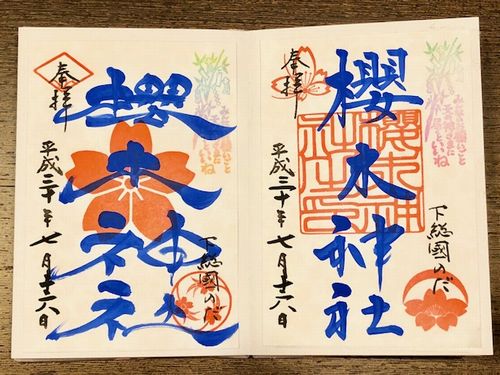 下総國のだ
櫻木神社
奉拝
平成三十年七月十六日
下総國のだ
櫻木神社
奉拝
平成三十年七月十六日